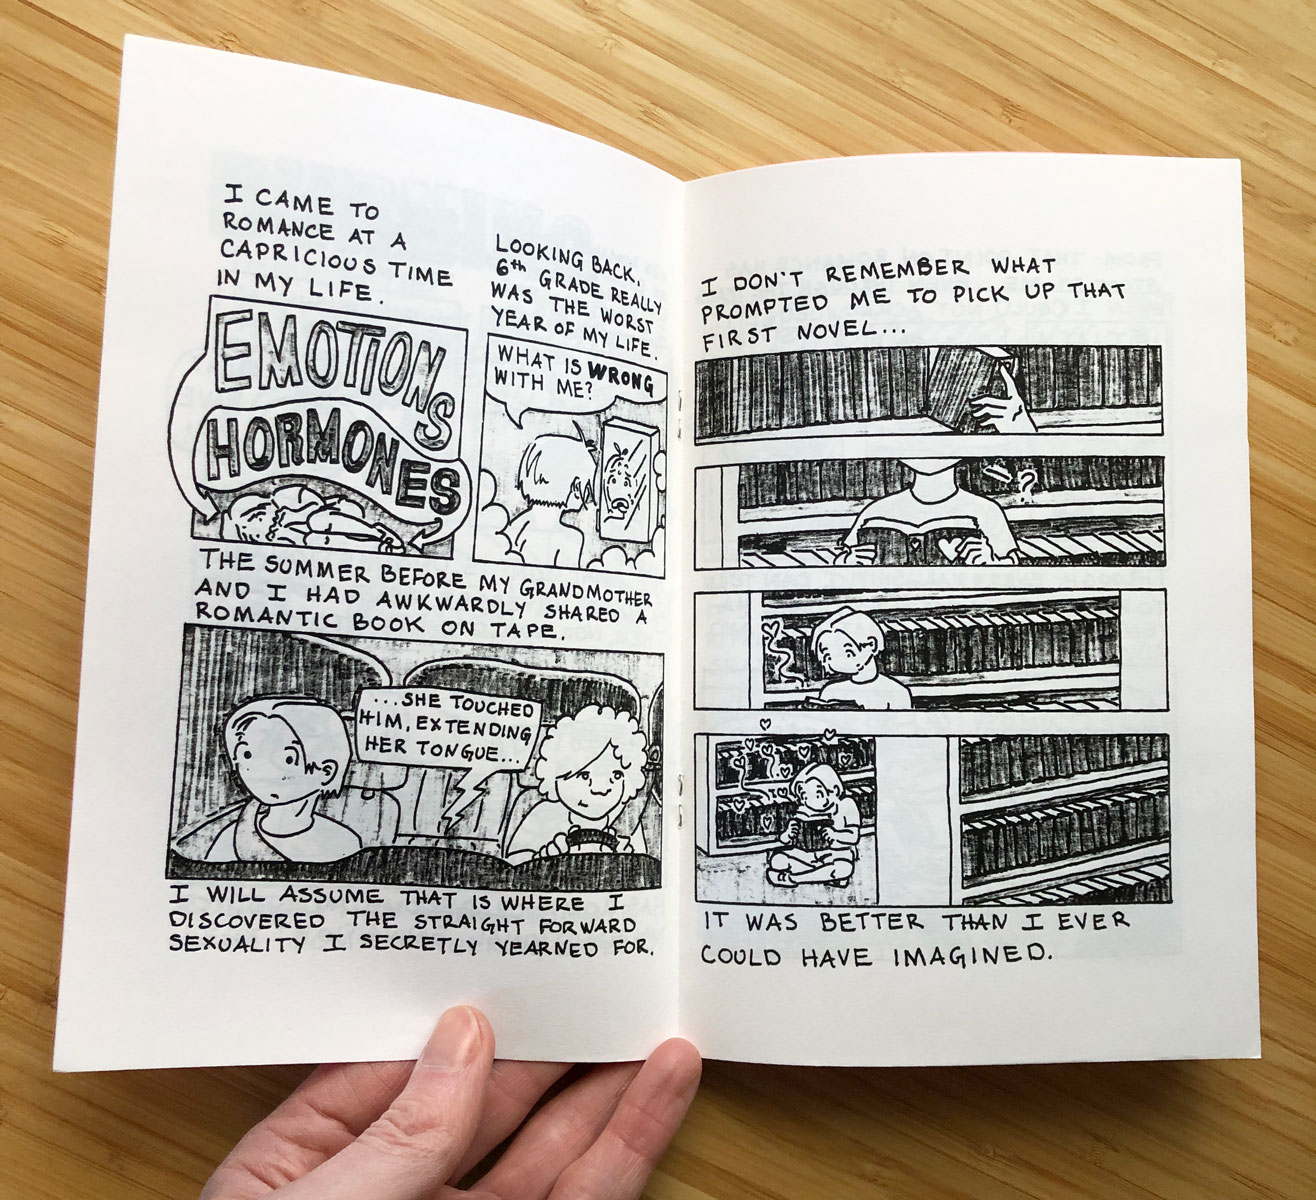 I CAME TO
ROMANCE AT A
CAPRICIOUS TIME
IN MY LIFE.
EMOTIONS
HORMONES
LOOKING BACK,
6th GRADE REALLY
WAS THE WORST
YEAR OF MY LIFE.
WHAT IS WRONG
WITH ME?
THE SUMMER BEFORE MY GRANDMOTHER
AND I HAD AWKWARDLY SHARED A
ROMANTIC BOOK ON TAPE.
...SHE TOUCHED
HIM, EXTENDING
HER TONGUE...
I WILL ASSUME THAT IS WHERE I
DISCOVERED THE STRAIGHT FORWARD
SEXUALITY I SECRETLY YEARNED FOR.
I DON'T REMEMBER WHAT
PROMPTED ME TO PICK UP THAT
FIRST NOVEL...
?
IT WAS BETTER THAN I EVER
COULD HAVE IMAGINED.